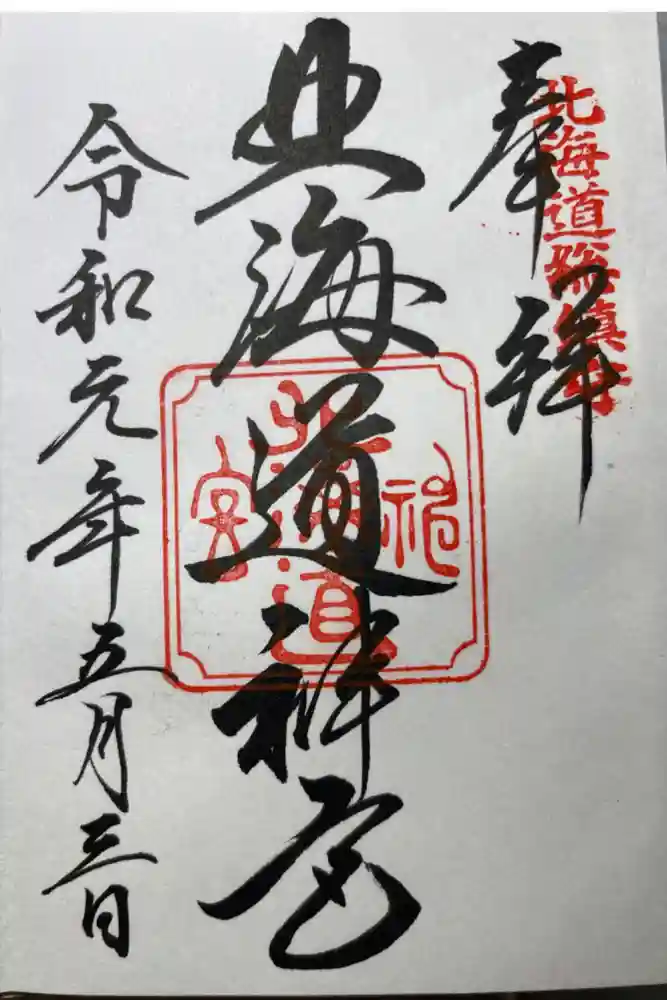 奉拝
北海道総鎮守
北海道神宮
北海道神宮
令和元年五月三日